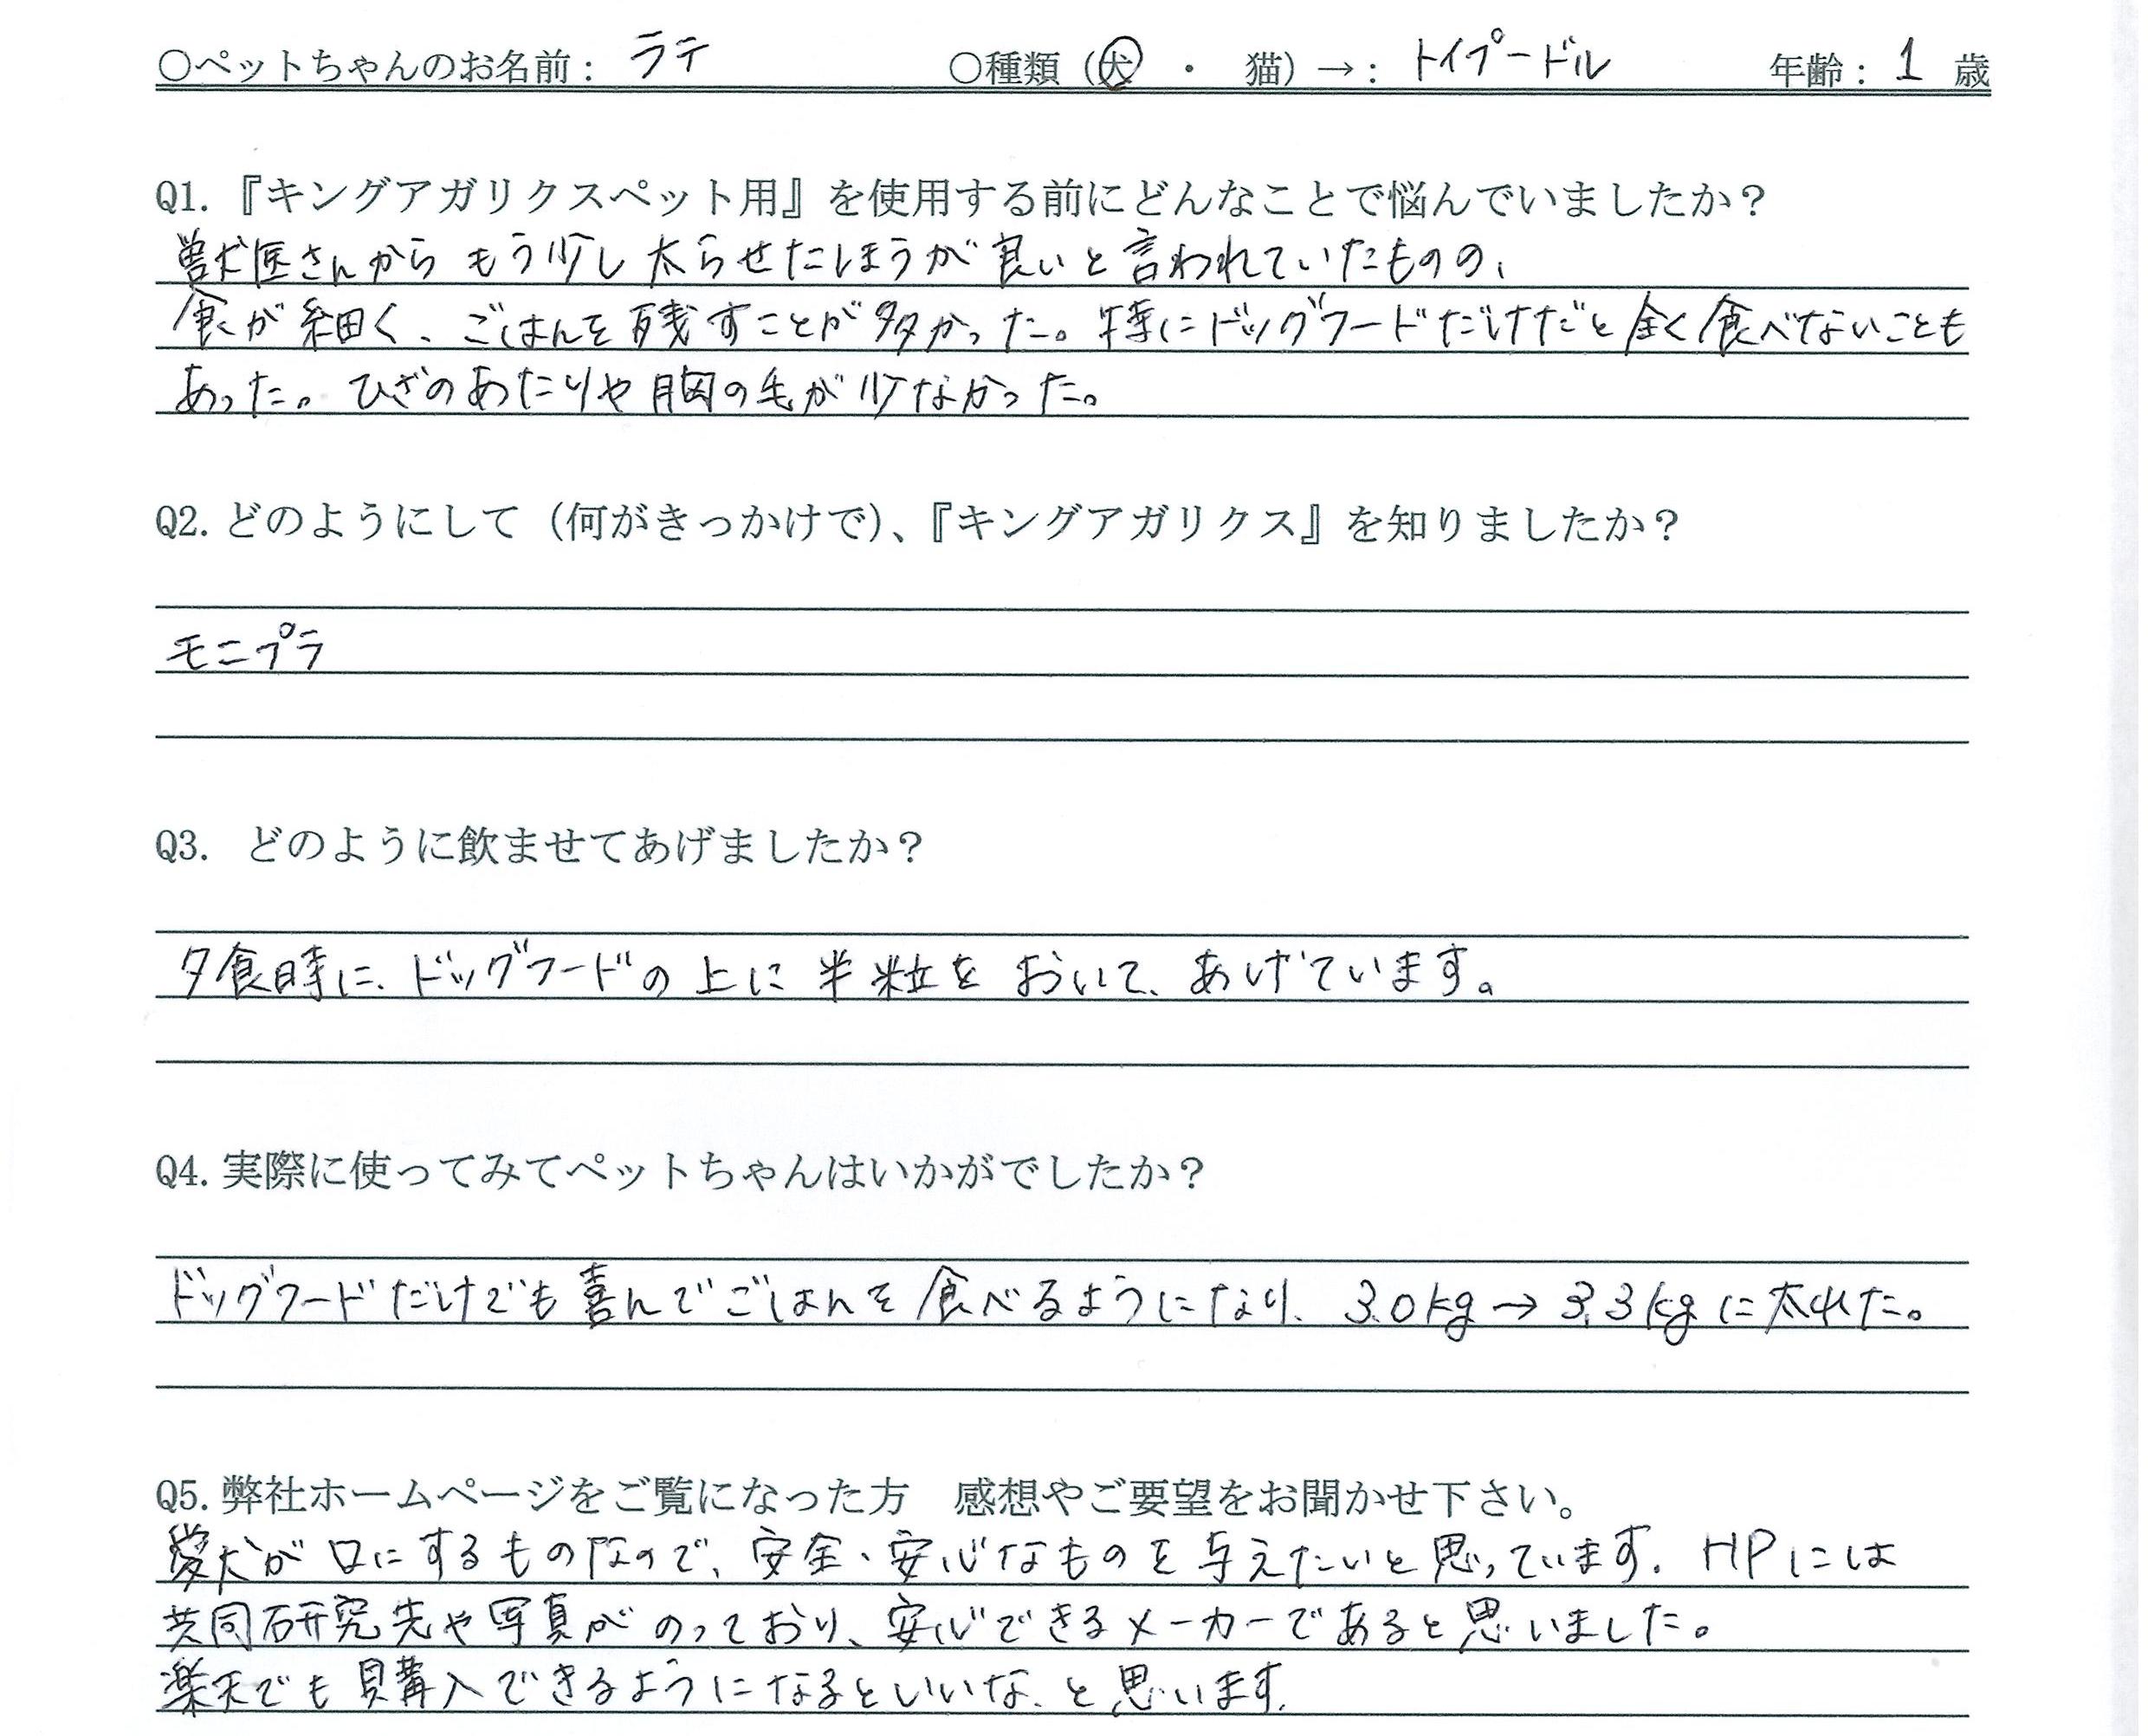 ○ペットちゃんのお名前： ラテ ○種類（犬 ・ 猫）→： トイプードル 年齢： 1 歳
Q1.『キングアガリクスペット用』を使用する前にどんなことで悩んでいましたか？
獣医さんから もう少し 太らせたほうが 良いと 言われていたものの、
食が 細く、ごはんを 残すことが 多かった。特にドッグフードだけだと全く食べないことも
あった。ひざのあたりや胸の毛が少なかった。
Q2.どのようにして（何がきっかけで）、『キングアガリクス』を知りましたか？
モニプラ
Q3. どのように飲ませてあげましたか？
夕食時に、ドッグフードの上に半粒をおいて、あげています。
Q4.実際に使ってみてペットちゃんはいかがでしたか？
ドッグフードだけでも喜んでごはんを食べるようになり、3.0kg→3.3kgに太れた。
Q5.弊社ホームページをご覧になった方　感想やご要望をお聞かせ下さい。
愛犬が口にするものなので、安全・安心なものを与えたいと思っています。HPには
共同研究先や写真がのっており、安心できるメーカーであると思いました。
楽天でも購入できるようになるといいな、と思います。